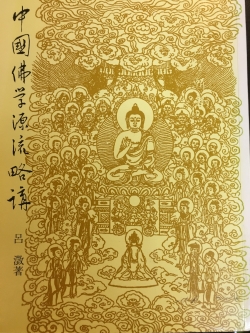 中國佛学源流略講
呂澂著